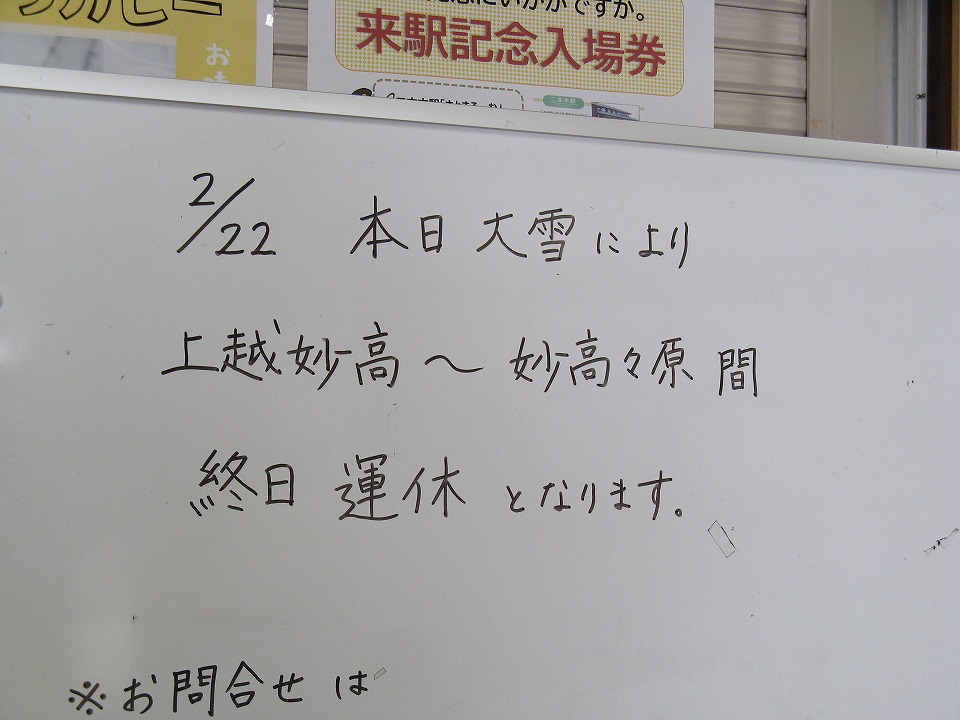 いかがですか。
来駅記念入場券
二本木駅
2/22 本日大雪により
上越妙高～妙高々原間
終日運休となります。
※お問合せは